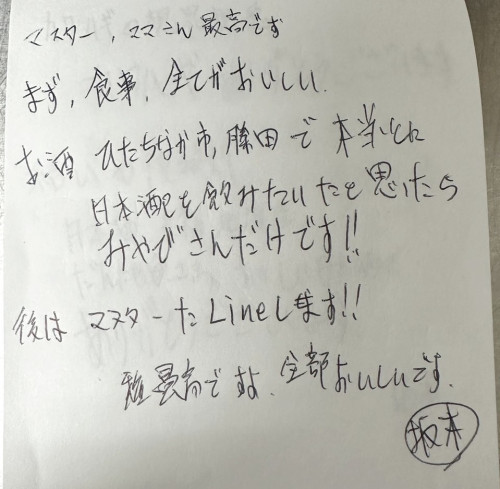 マスター、ママさん最高です
まず、食事、全てがおいしい.
お酒 ひたちなか市、勝田で本当に
日本酒を飲みたいたと思ったら
みやびさんだけです!!
後は マスターたLineします!!
雅最高ですよ、全部おいしいです.
坂本